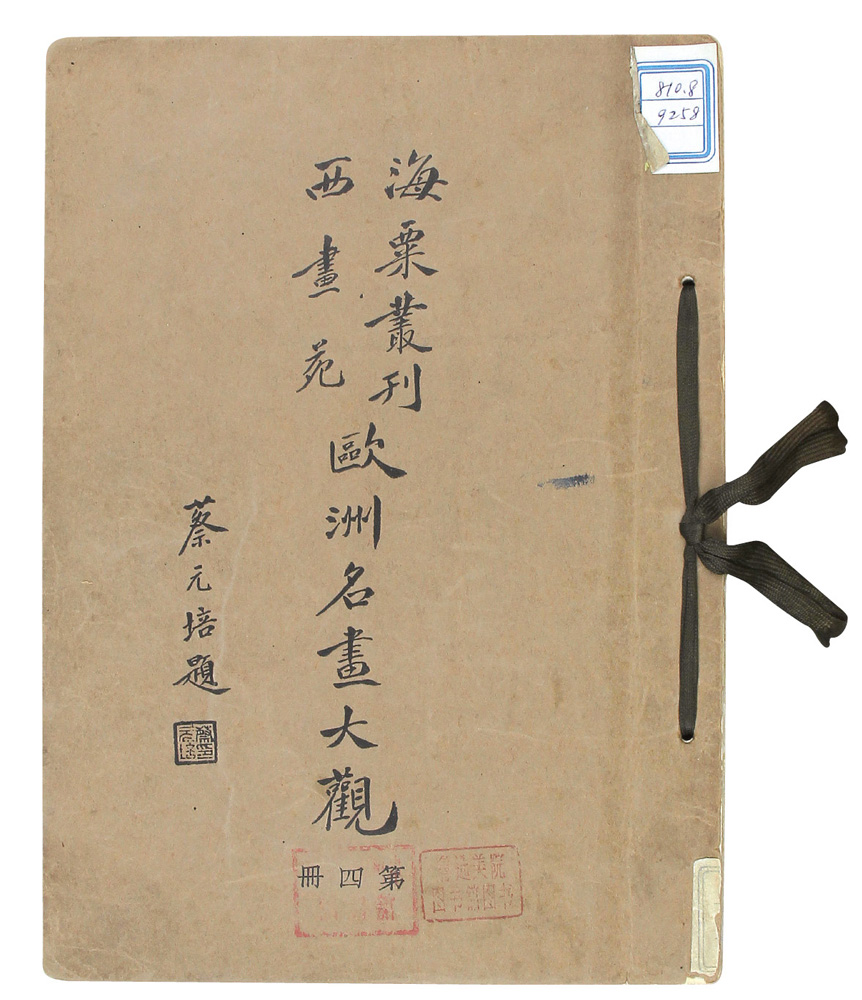 810.8
9258
海粟叢刊
西畫苑
歐洲名畫大觀
蔡元培題
第四冊